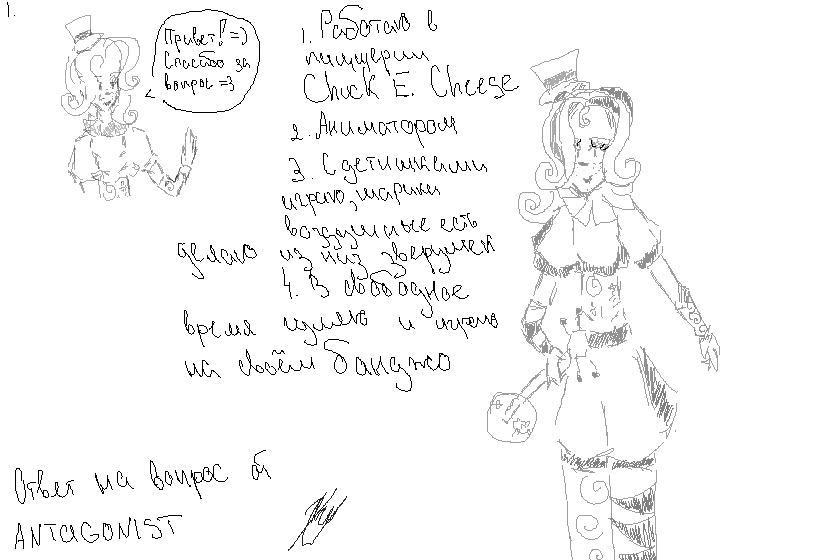 1.
Привет! =)
Спасибо за
вопрос =3
1. Работаю в
пиццерии
Chuck E. Cheese
2. Аниматором
3. С детишками
играю, шарики
воздушные есть
делаю из них зверушек
4. В свободное
время гуляю и играю
на своём банджо
Ответ на вопрос от
ANTAGONIST